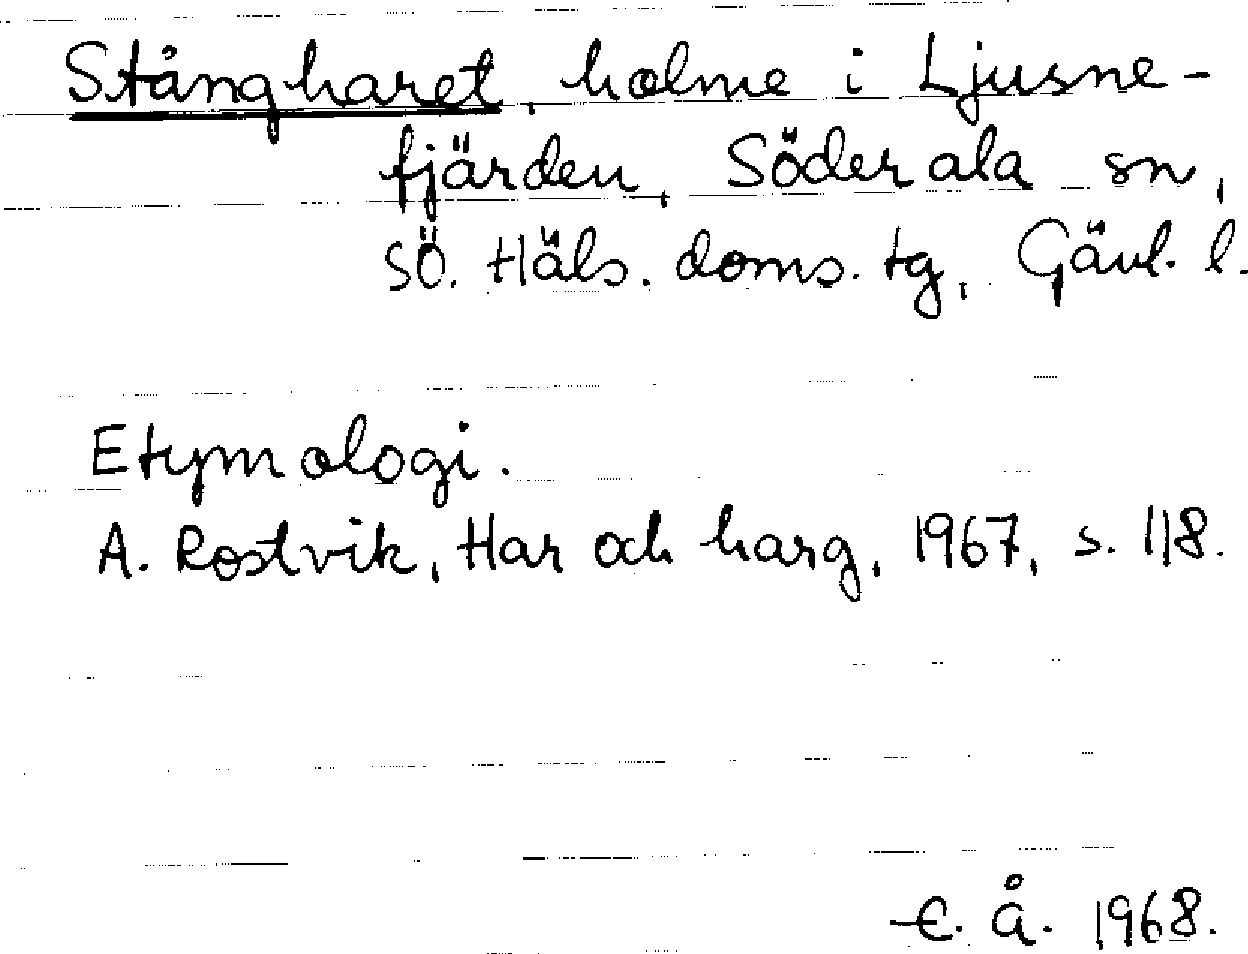 Stångharet, holme i Ljusne-
fjärden, Söderala sn,
SÖ. Häls. doms. tg, Gävl. l.
Etymologi.
A. Rostvik, Har och harg, 1967, s. 118.
E. Å. 1968.